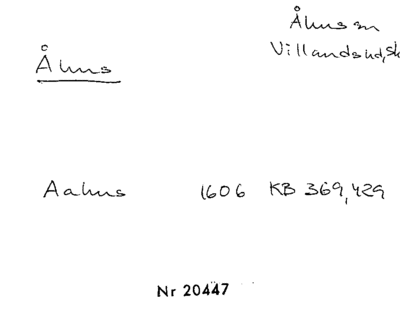 Åhus sn
Villands hd, Sk
Åhus
Aahus 1606 KB 369, 429
Nr 20447